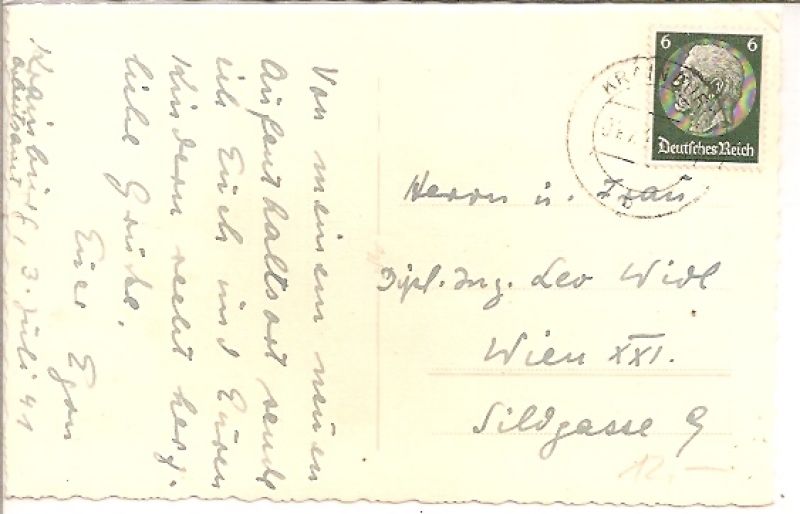 Von meinem neuen
Aufenthaltsort sende
ich Euch und Euren
Kindern recht herz-
liche Grüße.
Euer Egon
Krainburg, 3. Juli 41
6 6
Deutsches Reich
KRAINBURG
b
Herrn u. Frau
Dipl. Ing. Leo Widl
Wien XXI.
Sildgasse 9
12.—